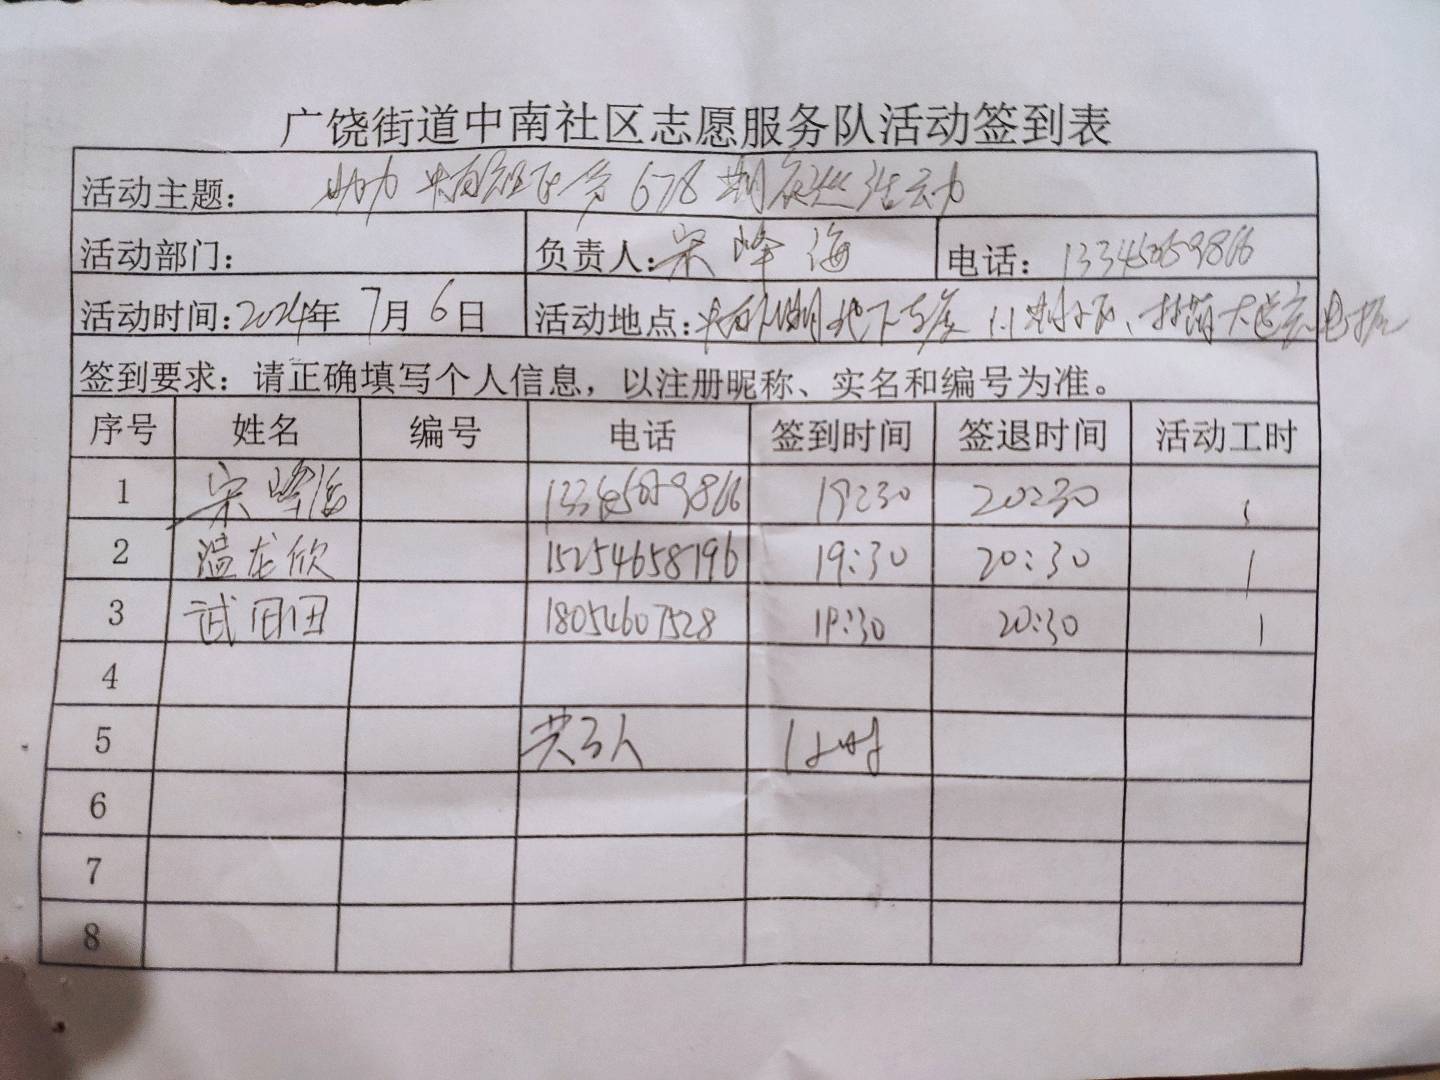 广饶街道中南社区志愿服务队活动签到表
活动主题： 助力 678期夜巡活动
活动部门： 负责人：宋峰海 电话：13345059866
活动时间：2024年 7月 6日 活动地点： 地下车库
签到要求：请正确填写个人信息，以注册昵称、实名和编号为准。
序号 姓名 编号 电话 签到时间 签退时间 活动工时
1 宋峰海 13345059866 19:30 20:30 1
2 温龙欣 15254658196 19:30 20:30 1
3 武田田 18054607528 19:30 20:30 1
4
5 共3人 1小时
6
7
8